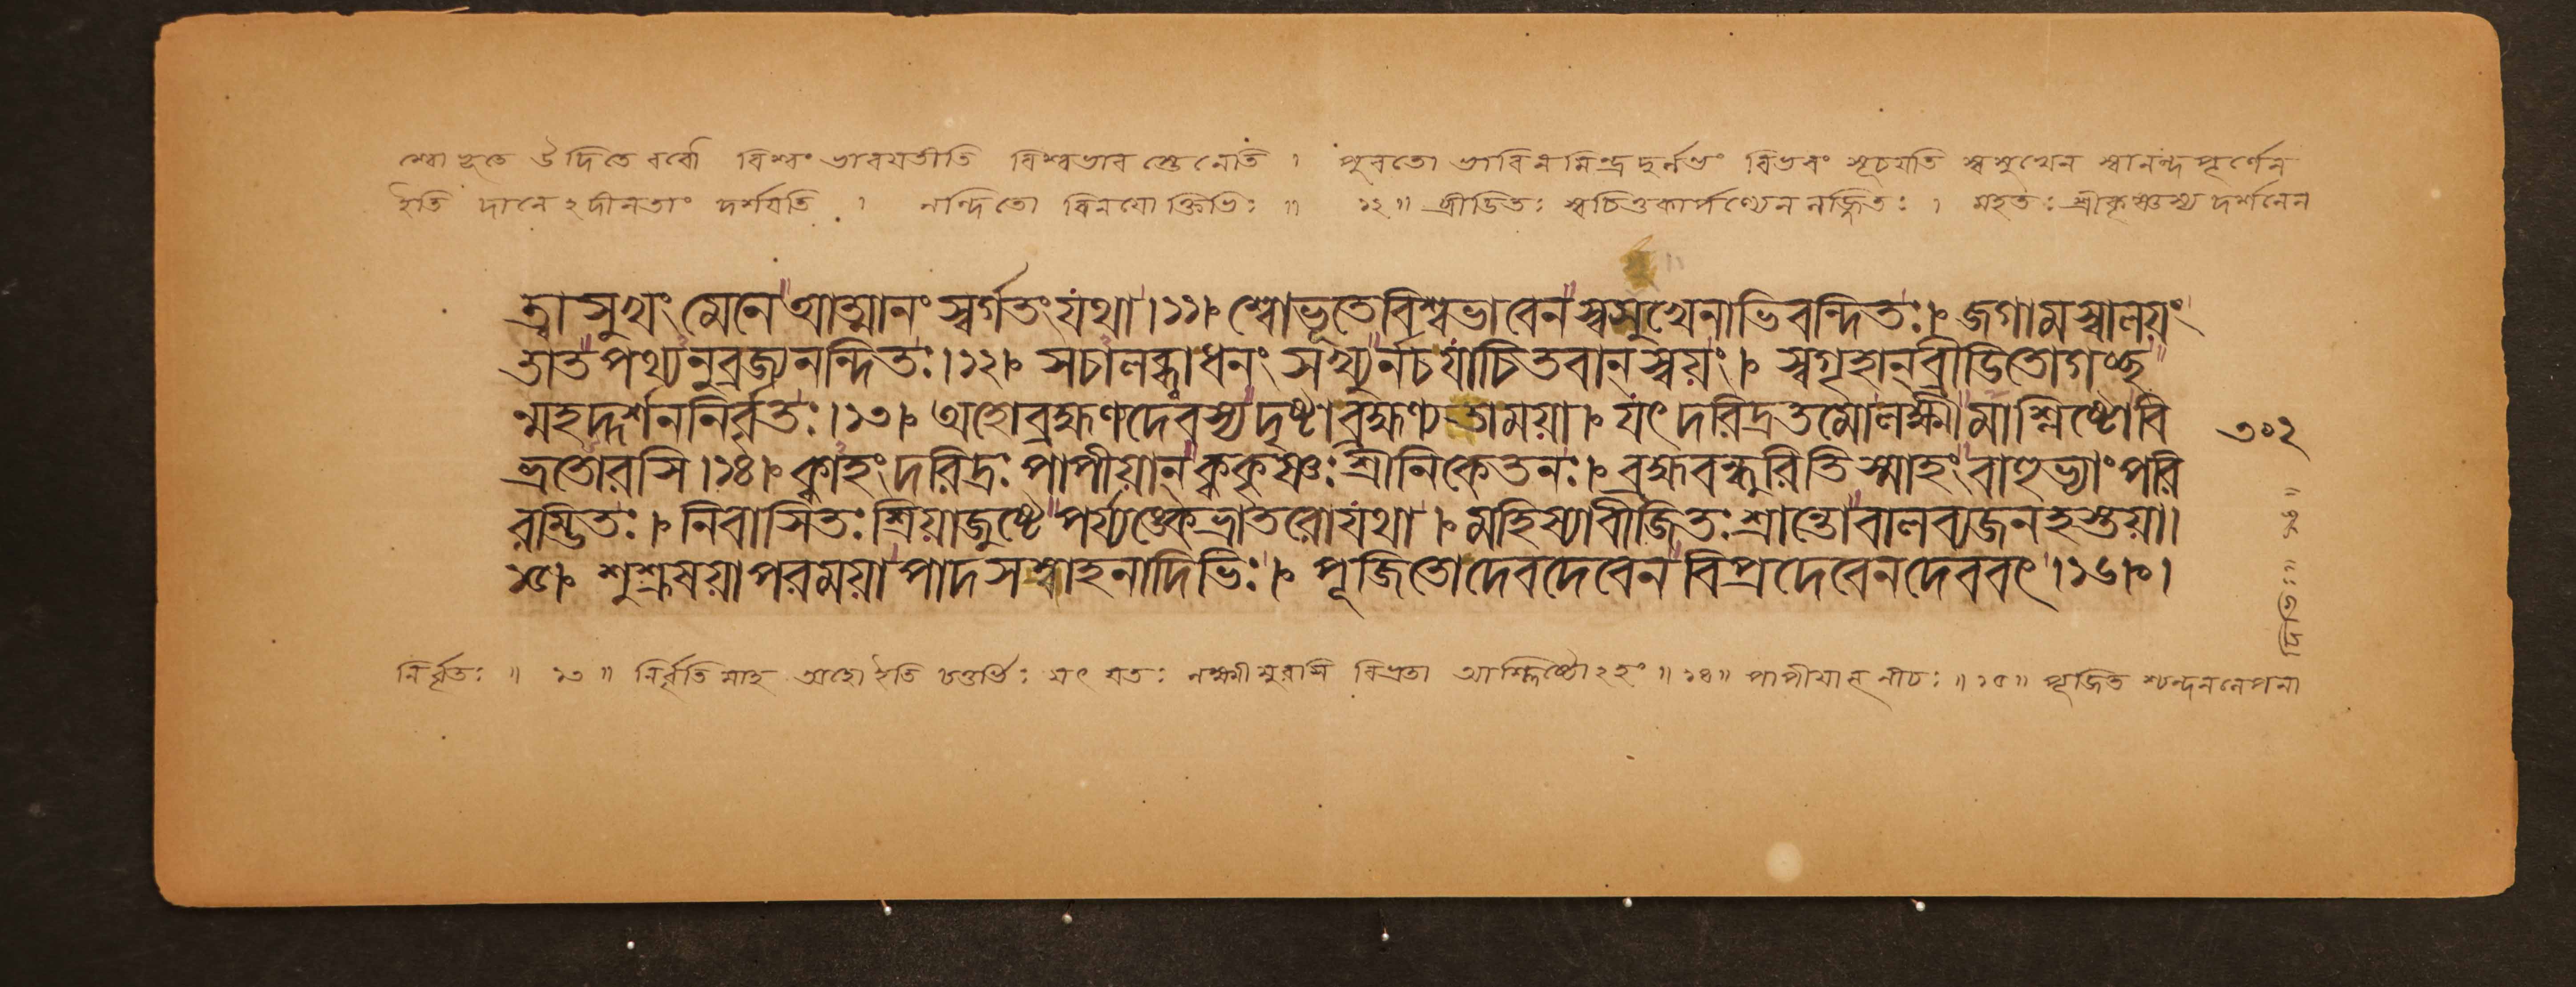 শ্বোভূতে উদিতে রবৌ বিশ্বং ভাবয়তীতি বিশ্বভাবস্তেনেতি । পুরতো ভাবিনমিন্দ্রদুর্লভং বিভবং সূচয়তি স্বসুখেন স্বানন্দপূর্ণেন
ইতি দানেঽদীনতাং দর্শয়তি । নন্দিতো বিনয়োক্তিভিঃ ॥ ১২॥ ব্রীডিতঃ স্বচিত্তকার্পণ্যেন লজ্জিতঃ । মহতঃ শ্রীকৃষ্ণস্য দর্শনেন
ত্বা সুখং মেনে আত্মানং স্বর্গতং যথা ।১১। শ্বোভূতেবিশ্বভাবেন স্বসুখেনাভিবন্দিতঃ । জগামস্বালয়ং
তাত পথ্যনুব্রজ্যনন্দিতঃ ।১২। সচালব্ধ্বাধনং সখ্যুর্নচযাচিতবান্ স্বয়ং । স্বগৃহান্ ব্রীডিতোগচ্ছ
ন্মহদ্দর্শননির্বৃতঃ ।১৩। অহোব্রহ্মণ্যদেবস্য দৃষ্টাব্রহ্মণ্যতাময়া । যৎ দরিদ্রতমোলক্ষ্মীমাশ্লিষ্টোবি
ভ্রতোরসি ।১৪। ক্বাহং দরিদ্রঃ পাপীয়ান্ ক্বকৃষ্ণঃ শ্রীনিকেতনঃ । ব্রহ্মবন্ধুরিতি স্মাহং বাহুভ্যাং পরি
রম্ভিতঃ । নিবাসিতঃ প্রিয়াজুষ্টে পর্য্যঙ্কেভ্রাতরোযথা । মহিষ্যাবীজিতঃ শ্রান্তোবালব্যজনহস্তয়া।
১৫। শুশ্রূষয়াপরময়া পাদসম্বাহনাদিভিঃ । পূজিতোদেবদেবেন বিপ্রদেবেনদেববৎ ।১৬।
৩০২
নির্বৃতঃ ॥ ১৩ ॥ নির্বৃতিমাহ অহো ইতি চতুর্ভিঃ যৎ যতঃ লক্ষ্মীমুরসি বিভ্রতা আশ্লিষ্টোঽহং ॥ ১৪॥ পাপীয়ান্ নীচঃ ॥ ১৫॥ পূজিত শ্চন্দনলেপনা
দিভিঃ ॥ ১৬ ॥